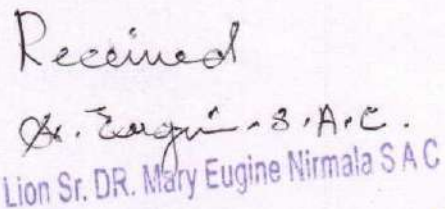 Received
Sr. Eugin - S.A.C.
Lion Sr. DR. Mary Eugine Nirmala S A C